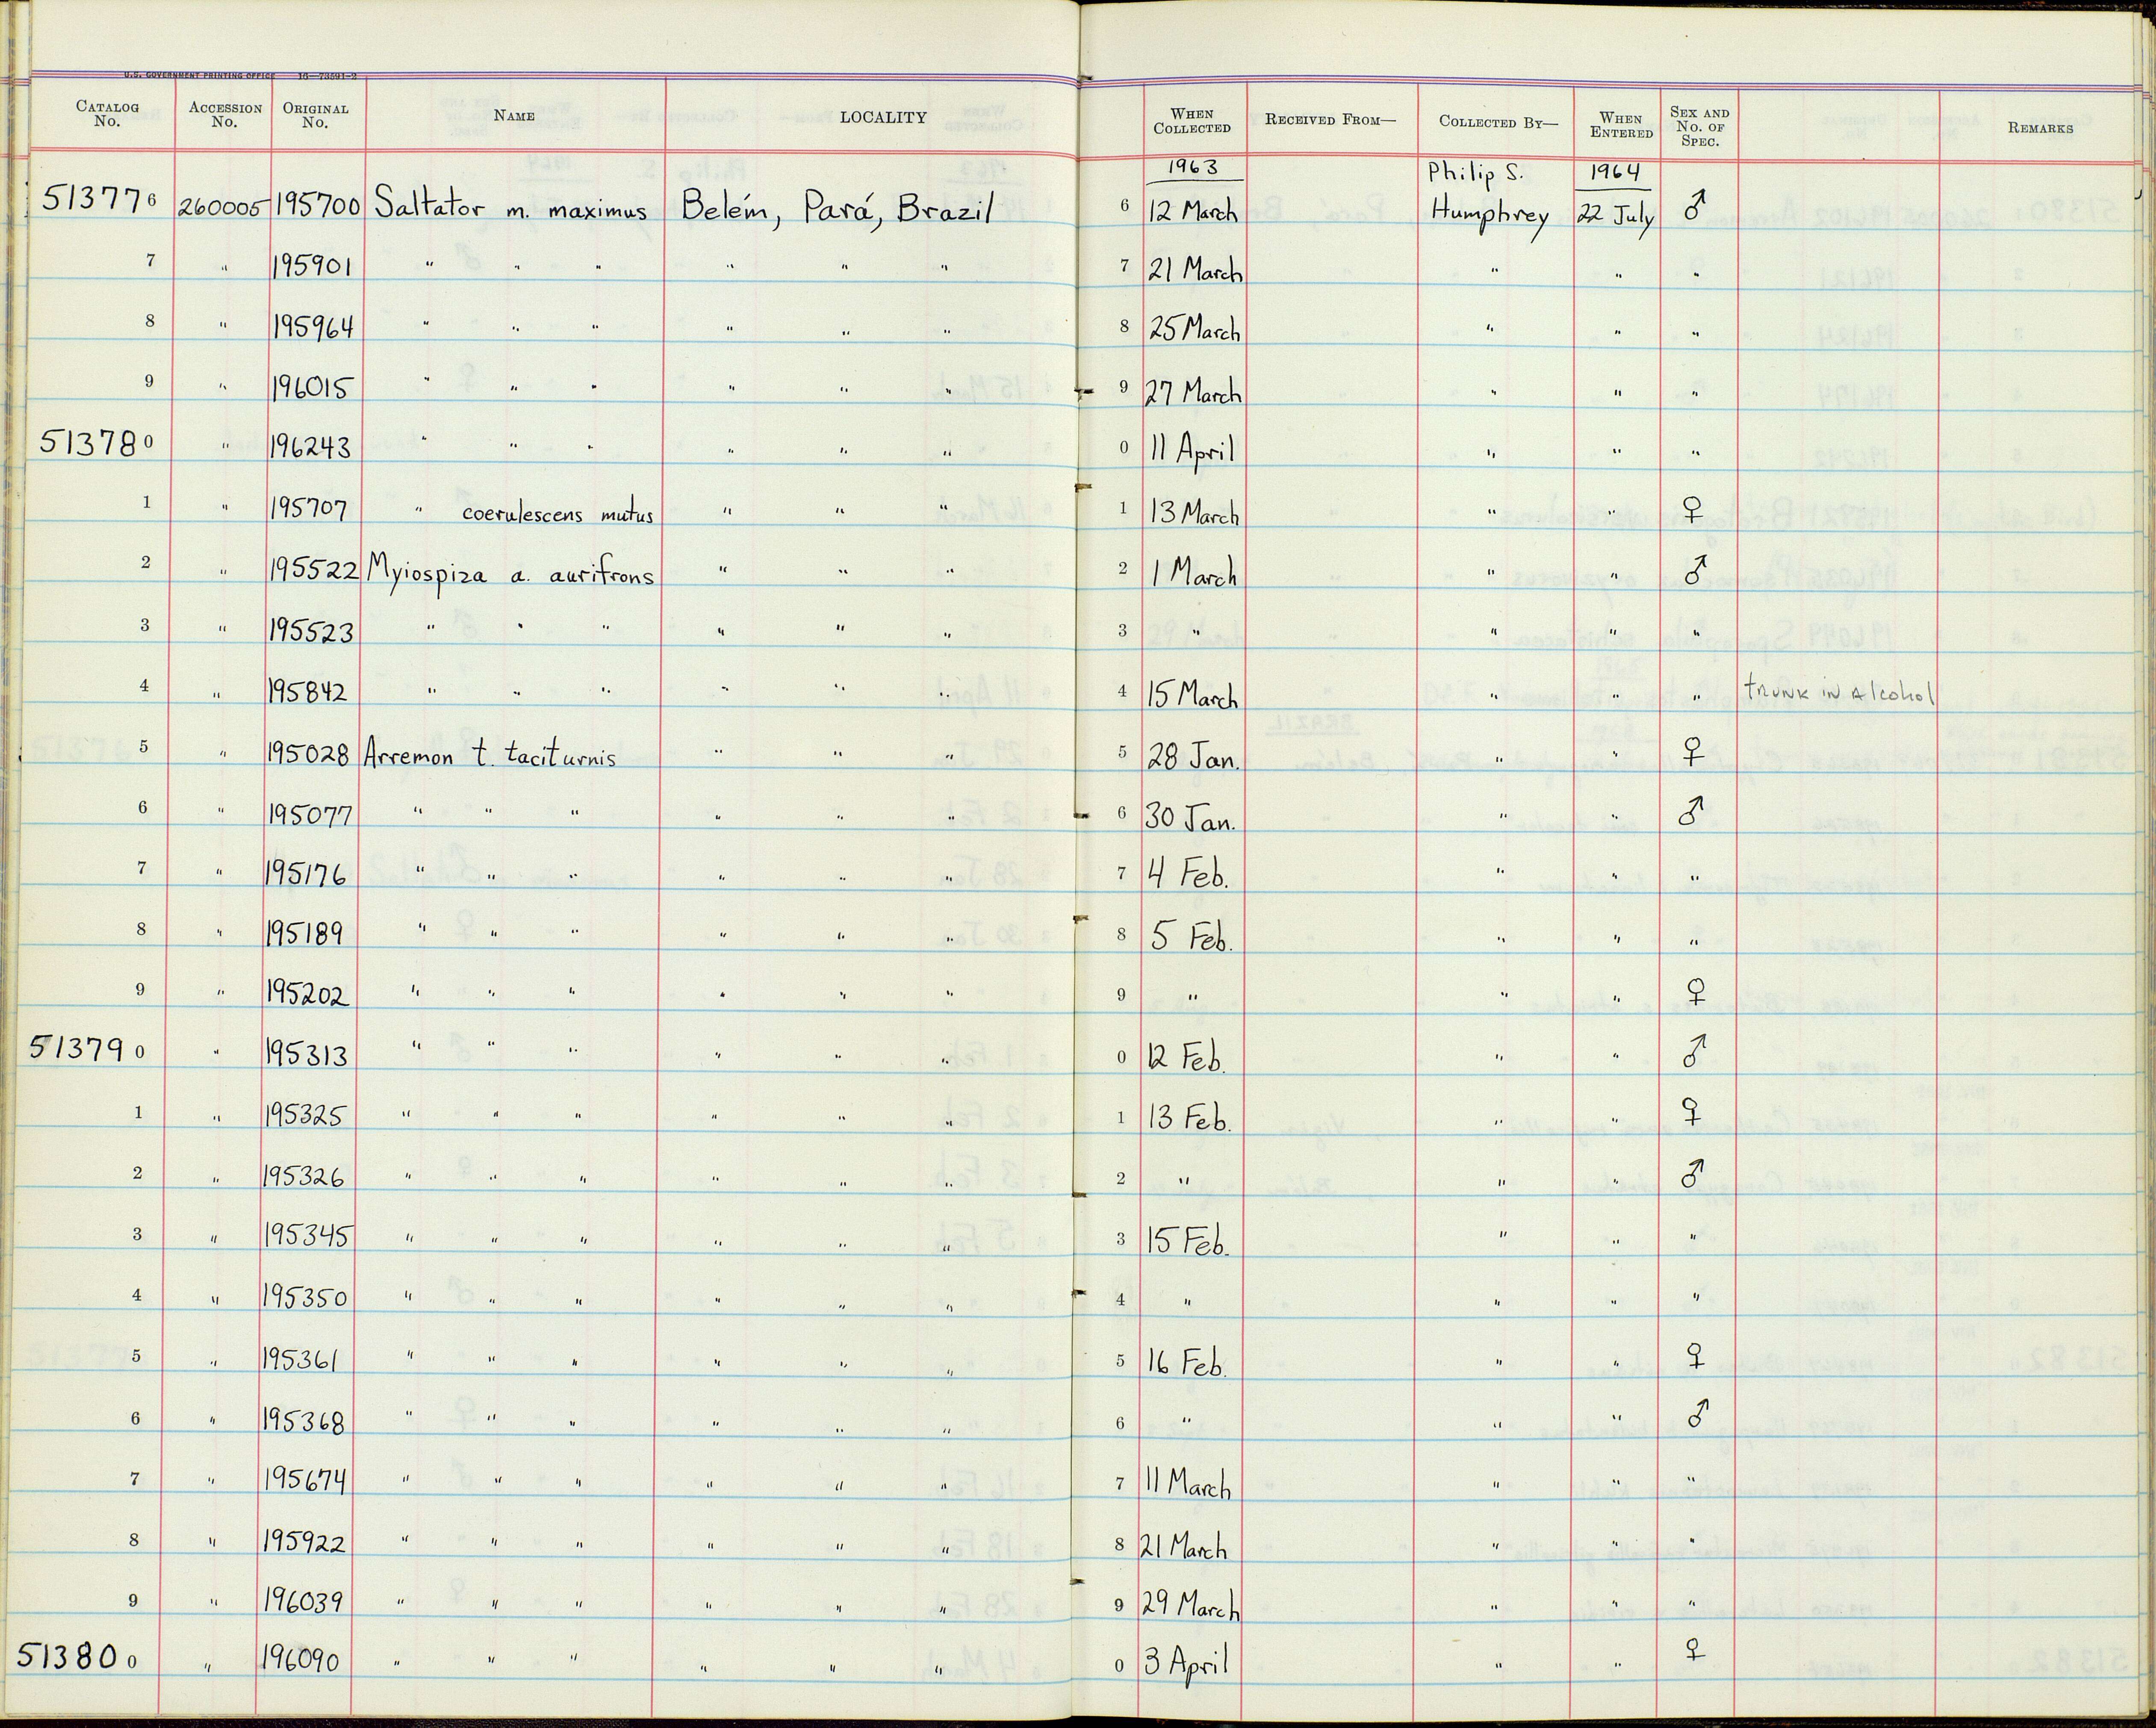 U.S. GOVERNMENT PRINTING OFFICE 16—73591-2
CATALOG No. ACCESSION No. ORIGINAL No. NAME LOCALITY WHEN COLLECTED RECEIVED FROM— COLLECTED BY— WHEN ENTERED SEX AND No. OF SPEC. REMARKS
1963 Philip S. 1964
513776 260005 195700 Saltator m. maximus Belém, Pará, Brazil 6 12 March Humphrey 22 July ♂
7 " 195901 " " " " " " 7 21 March " " "
8 " 195964 " " " " " " 8 25 March " " "
9 " 196015 " " " " " " 9 27 March " " "
513780 " 196243 " " " " " " 0 11 April " " "
1 " 195707 " coerulescens mutus " " " 1 13 March " " ♀
2 " 195522 Myiospiza a. aurifrons " " " 2 1 March " " ♂
3 " 195523 " " " " " " 3 " " " "
4 " 195842 " " " " " " 4 15 March " " " trunk in alcohol
5 " 195028 Arremon t. taciturnis " " " 5 28 Jan. " " ♀
6 " 195077 " " " " " " 6 30 Jan. " " ♂
7 " 195176 " " " " " " 7 4 Feb. " " "
8 " 195189 " " " " " " 8 5 Feb. " " "
9 " 195202 " " " " " " 9 " " " ♀
513790 " 195313 " " " " " " 0 12 Feb. " " ♂
1 " 195325 " " " " " " 1 13 Feb. " " ♀
2 " 195326 " " " " " " 2 " " " ♂
3 " 195345 " " " " " " 3 15 Feb. " " "
4 " 195350 " " " " " " 4 " " " "
5 " 195361 " " " " " " 5 16 Feb. " " ♀
6 " 195368 " " " " " " 6 " " " ♂
7 " 195674 " " " " " " 7 11 March " " "
8 " 195922 " " " " " " 8 21 March " " "
9 " 196039 " " " " " " 9 29 March " " "
513800 " 196090 " " " " " " 0 3 April " " ♀